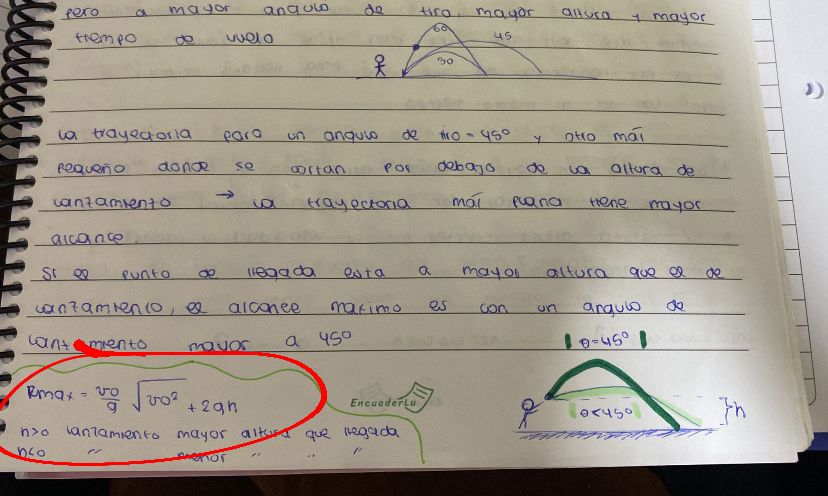 pero a mayor angulo de tiro, mayor altura y mayor
tiempo de vuelo
60
45
30
La trayectoria para un angulo de tiro = 45° y otro más
pequeño donde se cortan por debajo de la altura de
lanzamiento → La trayectoria más plana tiene mayor
alcance.
Si el punto de llegada esta a mayor altura que el de
lanzamiento, el alcance maximo es con un angulo de
lanzamiento mayor a 45°
θ=45°
Rmax = vo/g √vo² + 2gh
EncuaderLu
θ<45°
h
h>0 lanzamiento mayor altura que llegada
h<0 " menor " " "